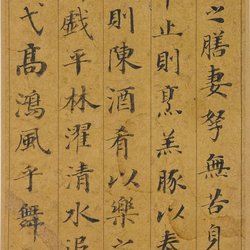 之膳妻孥無苦身
止則烹羔豚以奉
則陳酒肴以樂之
戲平林濯清水追
弋高鴻風乎舞